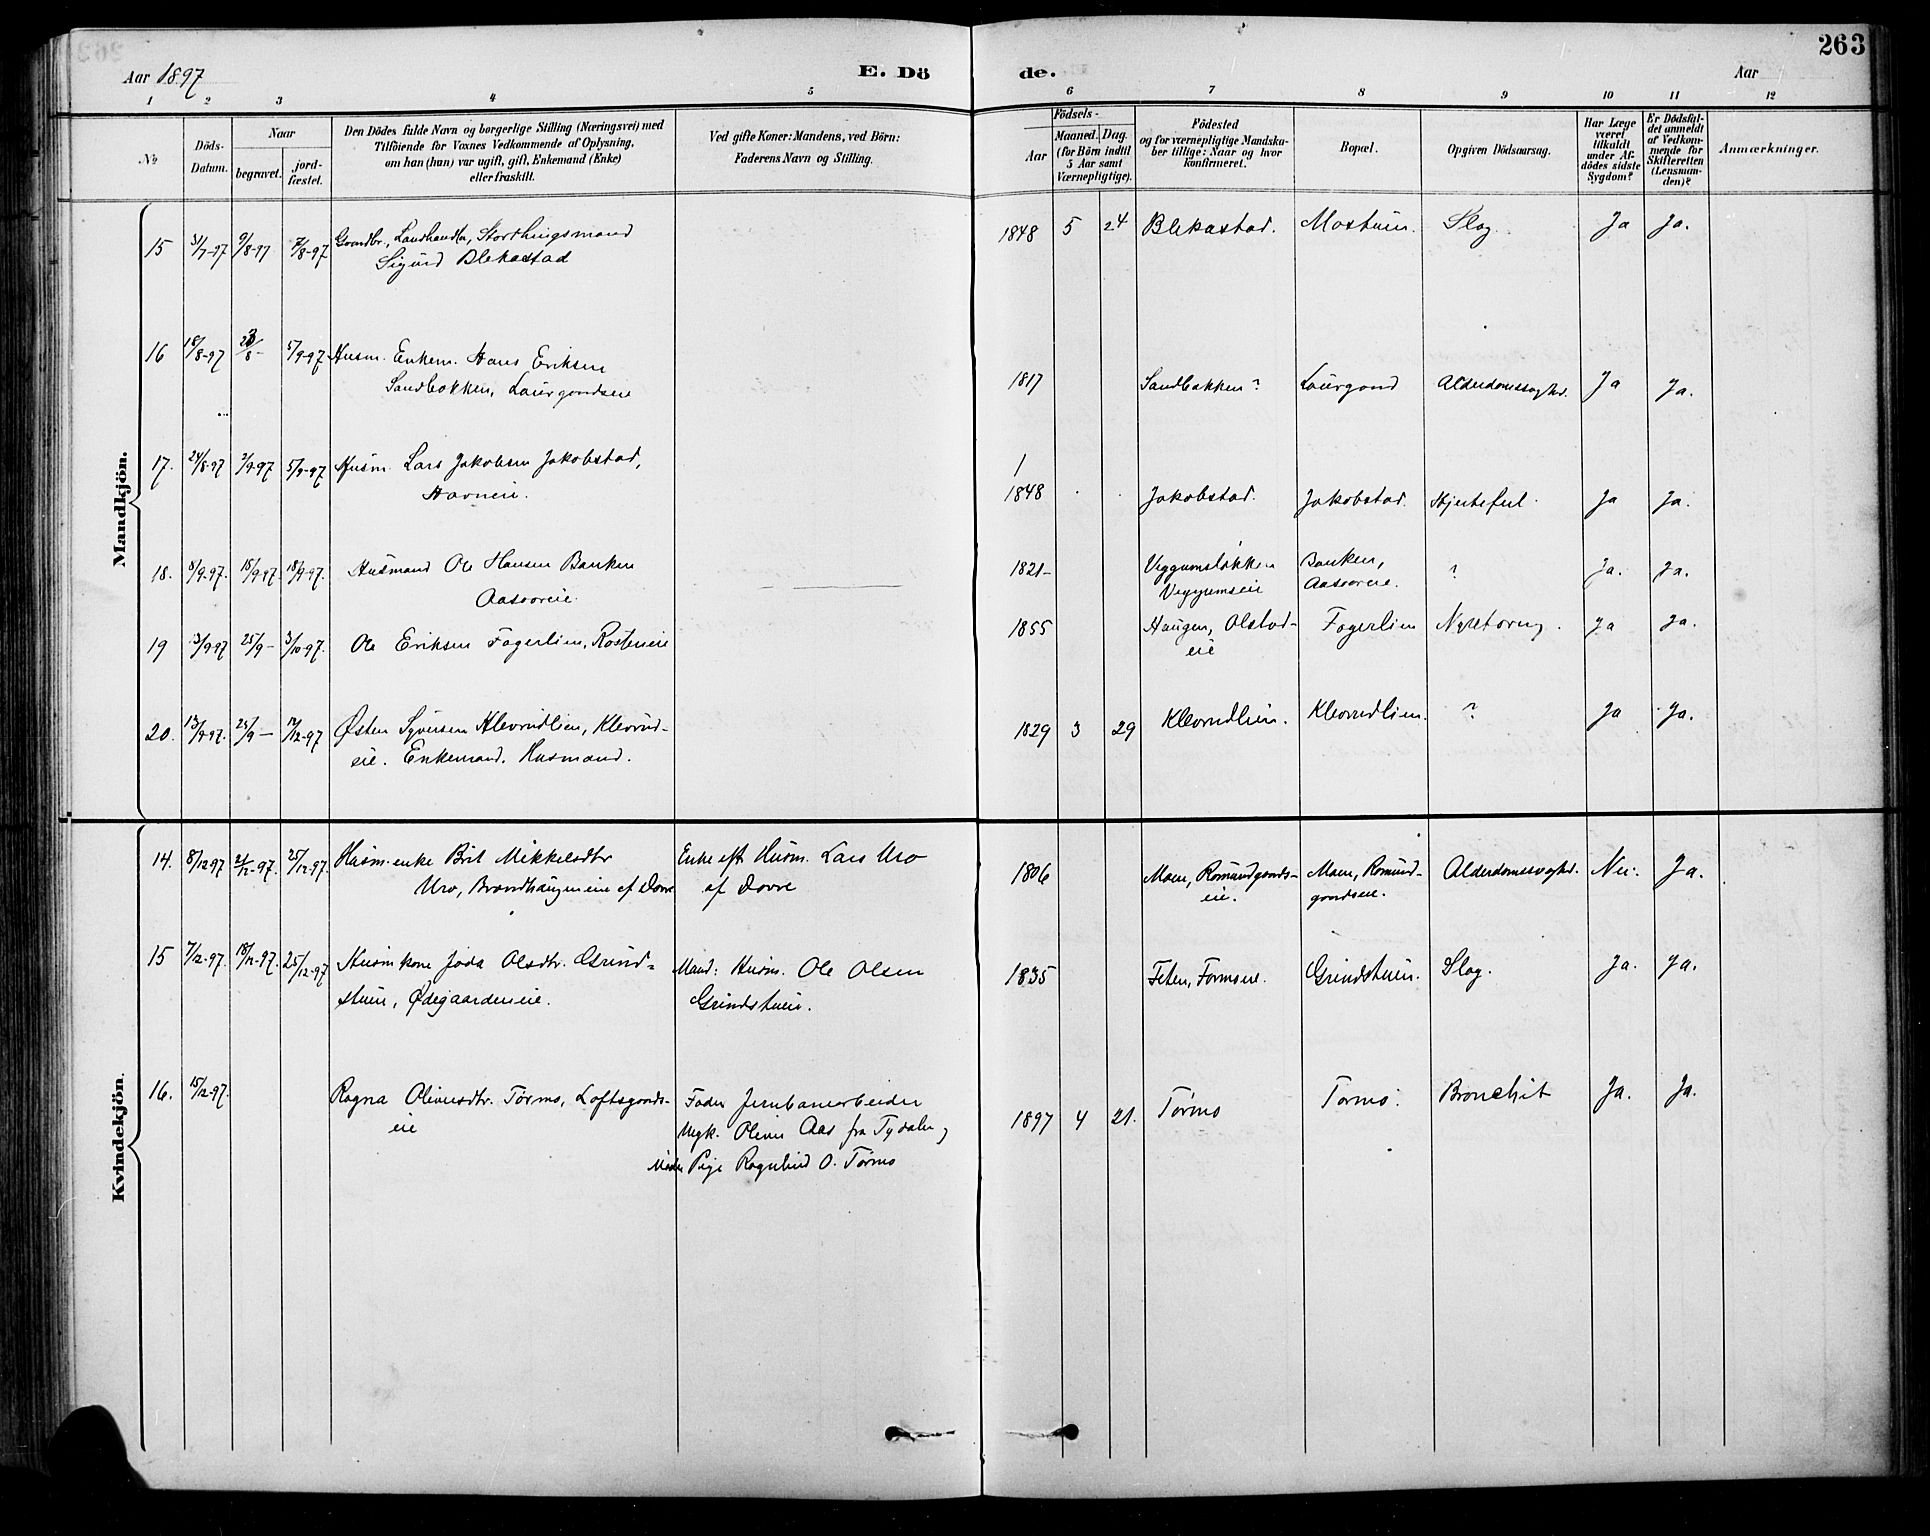 263
Aar 1897
E. Dö
de.
Aar
1 2 3 4 5 6 7 8 9 10 11 12
No
Döds-Datum.
Naar
begravet.
jord-fæstet.
Den Dödes fulde Navn og borgerlige Stilling (Næringsvei) med
Tilföiende for Voxnes Vedkommende af Oplysning,
om han (hun) var ugift, gift, Enkemand (Enke)
eller fraskilt.
Ved gifte Koner: Mandens, ved Börn:
Faderens Navn og Stilling.
Födsels-
Aar
Maaned. Dag.
(for Börn indtil
5 Aar samt
Værnepligtige).
Födested
og for værnepligtige Mandska-
ber tillige: Naar og hvor
konfirmeret.
Bopæl.
Opgiven Dödsaarsag.
Har Læge
været
tilkaldt
under Af-
dödes sidste
Sygdom?
Er Dödsfal-
det anmeldt
af Vedkom-
mende for
Skifteretten
(Lensman-
den)?
Anmærkninger.
Mandkjön.
15 31/7-97 9/8-97 7/8-97 Gaardbr., Landhandler, Storthingsmand
Sigurd Blekastad
1848 5 24 Blekastad. Mostuen. Slag. Ja Ja.
16 18/8-97 23/8- 5/9-97 Husm. Enkem. Hans Eriksen
Sandbakken, Laurgaardseie
1817 Sandbakken? Laurgaard Alderdomssvaghd. Ja Ja.
17. 24/8-97 2/9-97 5/9-97 Husm. Lars Jakobsen Jakobstad,
Havneie.
1848 Jakobstad. Jakobstad. Hjertefeil. Ja Ja.
18. 8/9-97. 18/9-97. 18/9-97. Husmand Ole Hansen Bakken
Aasoreie.
1821- Veggumsløkken
Veggumseie
Bakken,
Aasoreie.
? Ja. Ja.
19 13/9-97 25/9- 3/10-97. Ole Eriksen Fagerlien, Rosteneie
1855 Haugen, Olstad-
eie
Fagerlien Nyretæring. Ja Ja.
20. 13/9-97. 23/9- 12/12-97 Østen Syversen Klevrudlien, Klevrud-
eie. Enkemand. Husmand.
1829 3 29 Klevrudlien. Klevrudlien. ? Ja Ja.
Kvindekjön.
14. 8/12-97 21/12-97. 25/12-97. Husm.enke Brit Mikkelsdtr
Uro, Brandhaugeneie af Dovre
Enke eft Husm. Lars Uro
af Dovre
1806 Moen, Romundgaards-
eie.
Moen, Romund-
gaardseie.
Alderdomssvaghd. Nei. Ja.
15 7/12-97. 18/12-97. 25/12-97 Husmkone Joda Olsdtr. Grind-
stuen, Ødegaardeneie.
Mand: Husm. Ole Olsen
Grindstuen.
1835 Feten, Formseie. Grindstuen. Slag. Ja. Ja.
16. 15/12-97. Ragna Oliversdtr. Tørmo, Loftsgaards-
eie
Fader Jernbanearbeider
Ungk. Oliver Aas fra Tydalen,
Moder Pige Ragnhild O. Tørmo
1897 4 21. Tørmo Tormo. Bronchit Ja. Ja.